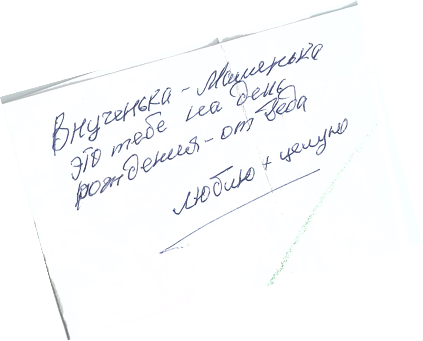 Внученька - Машенька
это тебе на день
рождения - от деда
люблю + целую